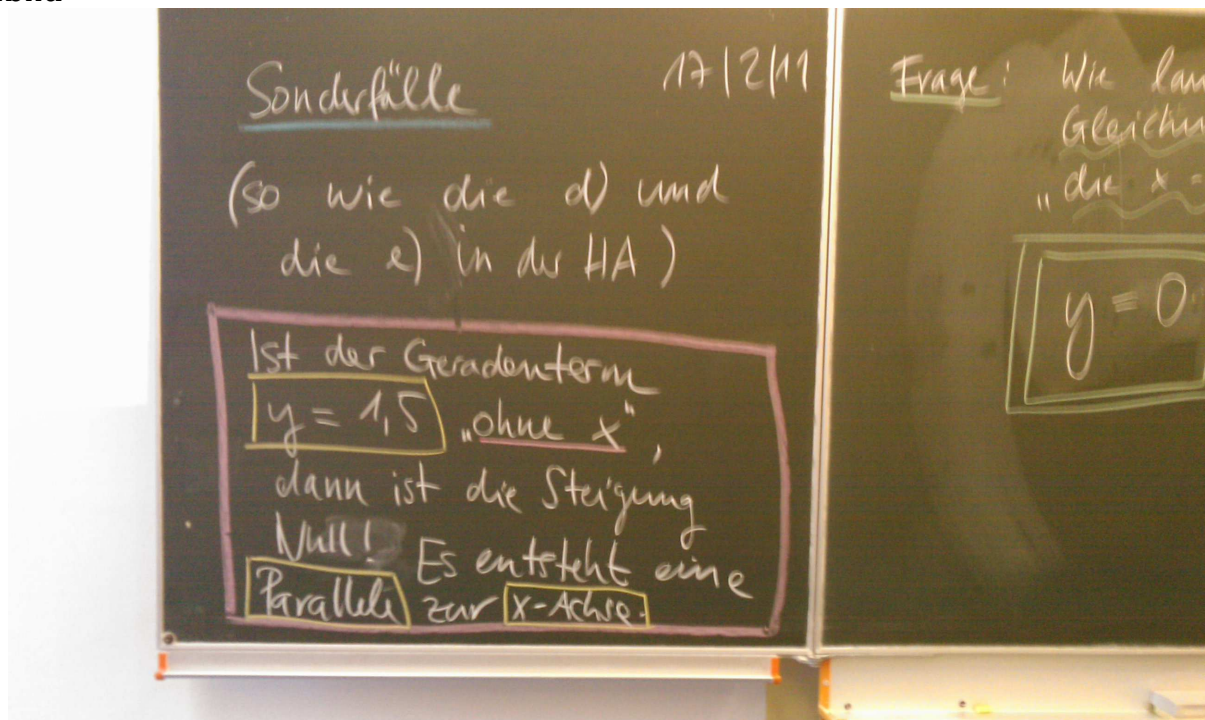 Sonderfälle 17|2|11
(so wie die d) und
die e) in der HA)
Ist der Geradenterm
y = 1,5 „ohne x“,
dann ist die Steigung
Null! Es entsteht eine
Parallele zur x-Achse.
Frage: Wie
„die x =
y = 0